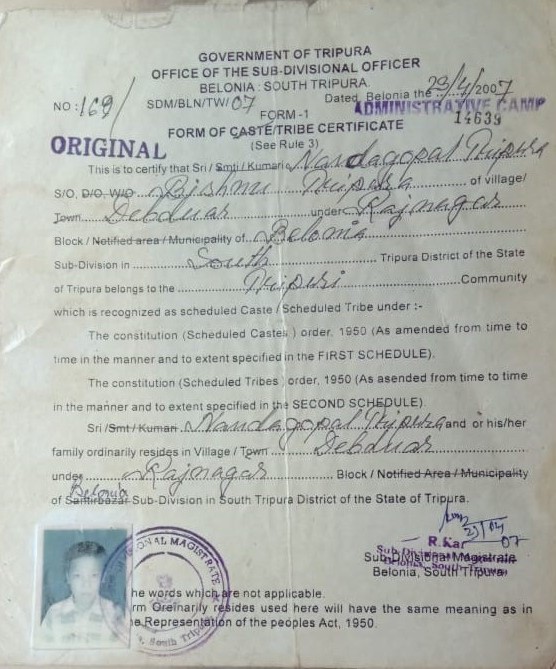 GOVERNMENT OF TRIPURA
OFFICE OF THE SUB-DIVISIONAL OFFICER
BELONIA : SOUTH TRIPURA.
NO : 169/ SDM/BLN/TW/07 Dated, Belonia the 23/4/2007
ADMINISTRATIVE CAMP
FORM -1 14639
ORIGINAL FORM OF CASTE/TRIBE CERTIFICATE
(See Rule 3)
This is to certify that Sri / Smti / Kumari Nandagopal Tripura
S/O, D/O, W/O Bishnu Tripura of village/
Town Debduar under Rajnagar
Block / Notified area / Municipality of Belonia
Sub-Division in South Tripura District of the State
of Tripura belongs to the Tripuri Community
which is recognized as scheduled Caste / Scheduled Tribe under :-
The constitution (Scheduled Castes ) order, 1950 (As amended from time to
time in the manner and to extent specified in the FIRST SCHEDULE).
The constitution (Scheduled Tribes ) order, 1950 (As asended from time to time
in the manner and to extent specified in the SECOND SCHEDULE).
Sri /Smt / Kumari Nandagopal Tripura and or his/her
family ordinarily resides in Village / Town Debduar
under Rajnagar Block / Notified Area / Municipality
Belonia
of Santirbazar Sub-Division in South Tripura District of the State of Tripura.
R.Kar 07
Sub-Divisional Magistrate
Belonia, South Tripura
he words which are not applicable.
rm Oreinarily resides used here will have the same meaning as in
he Representation of the peoples Act, 1950.